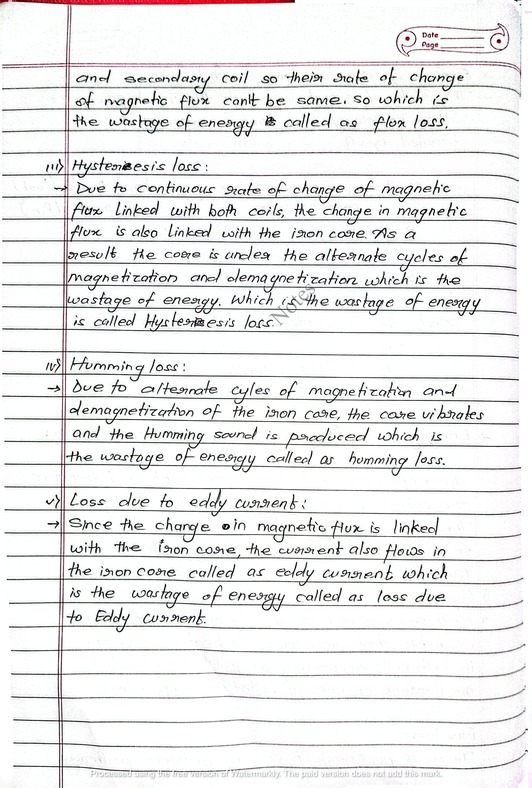 Date
Page
and secondary coil so their rate of change
of magnetic flux can't be same. so which is
the wastage of energy is called as flux loss.
iii) Hysteresis loss:
→ Due to continuous rate of change of magnetic
flux linked with both coils, the change in magnetic
flux is also linked with the iron core. As a
result the core is under the alternate cycles of
magnetization and demagnetization which is the
wastage of energy. Which is the wastage of energy
is called Hysteresis loss.
Notes
iv) Humming loss:
→ Due to alternate cyles of magnetization and
demagnetization of the iron core, the core vibrates
and the Humming sound is produced which is
the wastage of energy called as humming loss.
v) Loss due to eddy current:
→ Since the change in magnetic flux is linked
with the iron core, the current also flows in
the iron core called as eddy current which
is the wastage of energy called as loss due
to Eddy current.
Processed using the free version of Watermarkly. The paid version does not add this mark.